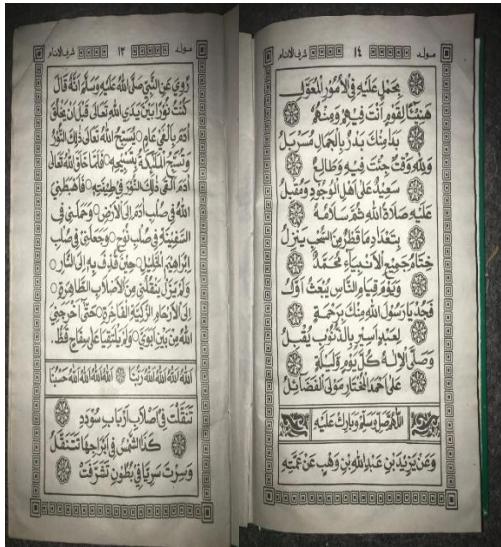 مولد ١٣ شرف الانام
رُوِيَ عَنِ النَّبِيِّ صَلَّى اللهُ عَلَيْهِ وَسَلَّمَ أَنَّهُ قَالَ
كُنْتُ نُورًا بَيْنَ يَدَيِ اللهِ تَعَالَى قَبْلَ أَنْ يَخْلُقَ
اٰدَمَ بِأَلْفَيْ عَامٍ ۞ يُسَبِّحُ اللهَ تَعَالَى ذٰلِكَ النُّوْرُ
وَتُسَبِّحُ الْمَلٰئِكَةُ بِتَسْبِيْحِهِ ۞ فَلَمَّا خَلَقَ اللهُ تَعَالَى
اٰدَمَ اَلْقَى ذٰلِكَ النُّوْرَ فِيْ طِيْنَتِهِ ۞ فَأَهْبَطَنِيَ
اللهُ فِيْ صُلْبِ اٰدَمَ إِلَى الْاَرْضِ ۞ وَحَمَلَنِيْ فِي
السَّفِيْنَةِ فِيْ صُلْبِ نُوْحٍ ۞ وَجَعَلَنِيْ فِيْ صُلْبِ
إِبْرَاهِيْمَ الْخَلِيْلِ ۞ حِيْنَ قُذِفَ بِهِ إِلَى النَّارِ ۞
وَلَمْ يَزَلْ يَنْقُلُنِيْ مِنَ الْاَصْلَابِ الطَّاهِرَةِ ۞
إِلَى الْاَرْحَامِ الزَّكِيَّةِ الْفَاخِرَةِ ۞ حَتّٰى اَخْرَجَنِيَ
اللهُ مِنْ بَيْنِ اَبَوَيَّ ۞ وَلَمْ يَلْتَقِيَا عَلَى سِفَاحٍ قَطُّ.
اَللهُ اَللهُ اَللهُ اَللهُ رَبُّنَا ۞ اَللهُ اَللهُ اَللهُ اَللهُ حَسْبُنَا
تَنَقَّلْتَ فِيْ اَصْلَابِ اَرْبَابِ سُوْدَدٍ ۞
۞ كَذَا الشَّمْسُ فِيْ اَبْرَاجِهَا تَتَنَقَّلُ
وَسِرْتَ سَرِيًّا فِيْ بُطُوْنٍ تَشَرَّفَتْ ۞
مولد ١٤ شرف الانام
۞ بِحَمْلٍ عَلَيْهِ فِي الْاُمُوْرِ الْمُعَوَّلُ
هَنِيْئًا لِقَوْمٍ اَنْتَ فِيْهِمْ وَمِنْهُمْ ۞
۞ بَدَا مِنْكَ بَدْرٌ بِالْجَمَالِ مُسَرْبَلُ
وَلِلّٰهِ وَقْتٌ جِئْتَ فِيْهِ وَطَالِعٌ ۞
۞ سَعِيْدٌ عَلَى اَهْلِ الْوُجُوْدِ وَمُقْبِلُ
عَلَيْهِ صَلَاةُ اللهِ ثُمَّ سَلَامُهُ ۞
۞ بِتَعْدَادِ مَا قَطْرٌ مِنَ السُّحْبِ يَنْزِلُ
خِتَامُ جَمِيْعِ الْاَنْبِيَاءِ مُحَمَّدٌ ۞
۞ وَيَوْمَ قِيَامِ النَّاسِ يُبْعَثُ اَوَّلُ
فَجُدْ يَا رَسُوْلَ اللهِ مِنْكَ بِرَحْمَةٍ ۞
۞ لِعَبْدٍ اَسِيْرٍ بِالذُّنُوْبِ يُقَبِّلُ
وَصَلَّى الْإِلٰهُ كُلَّ يَوْمٍ وَلَيْلَةٍ ۞
۞ عَلَى اَحْمَدَ الْمُخْتَارِ مَوْلَى الْفَضَائِلِ
اَللّٰهُمَّ صَلِّ وَسَلِّمْ وَبَارِكْ عَلَيْهِ
وَعَنْ يَزِيْدَ بْنِ عَبْدِ اللهِ بْنِ وَهْبٍ عَنْ عَمَّتِهِ